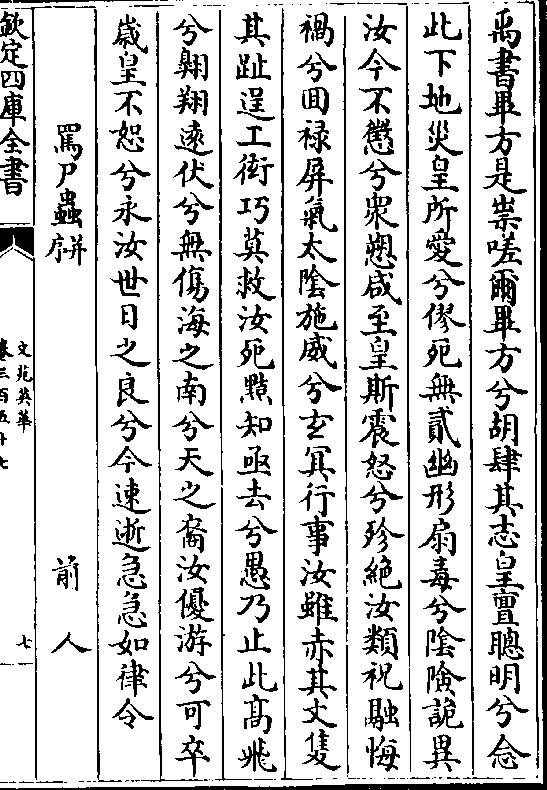 禹書畢方是祟嗟爾畢方兮胡肆其志皇亶聰明兮念
此下地災皇所愛兮僇死無貳幽形扇毒兮陰險詭異
汝今不懲兮衆愬咸至皇斯震怒兮殄絶汝類祝融悔
禍兮回禄屏氣太陰施威兮玄冥行事汝雖赤其文隻
其趾逞工衒巧莫救汝死黠知亟去兮愚乃止此髙飛
兮翺翔逺伏兮無傷海之南兮天之裔汝優游兮可卒
嵗皇不恕兮永汝世日之良兮今速逝急急如律令
罵尸蟲䪺 前人
欽定四庫全書
文苑英華
卷三百五十七
七